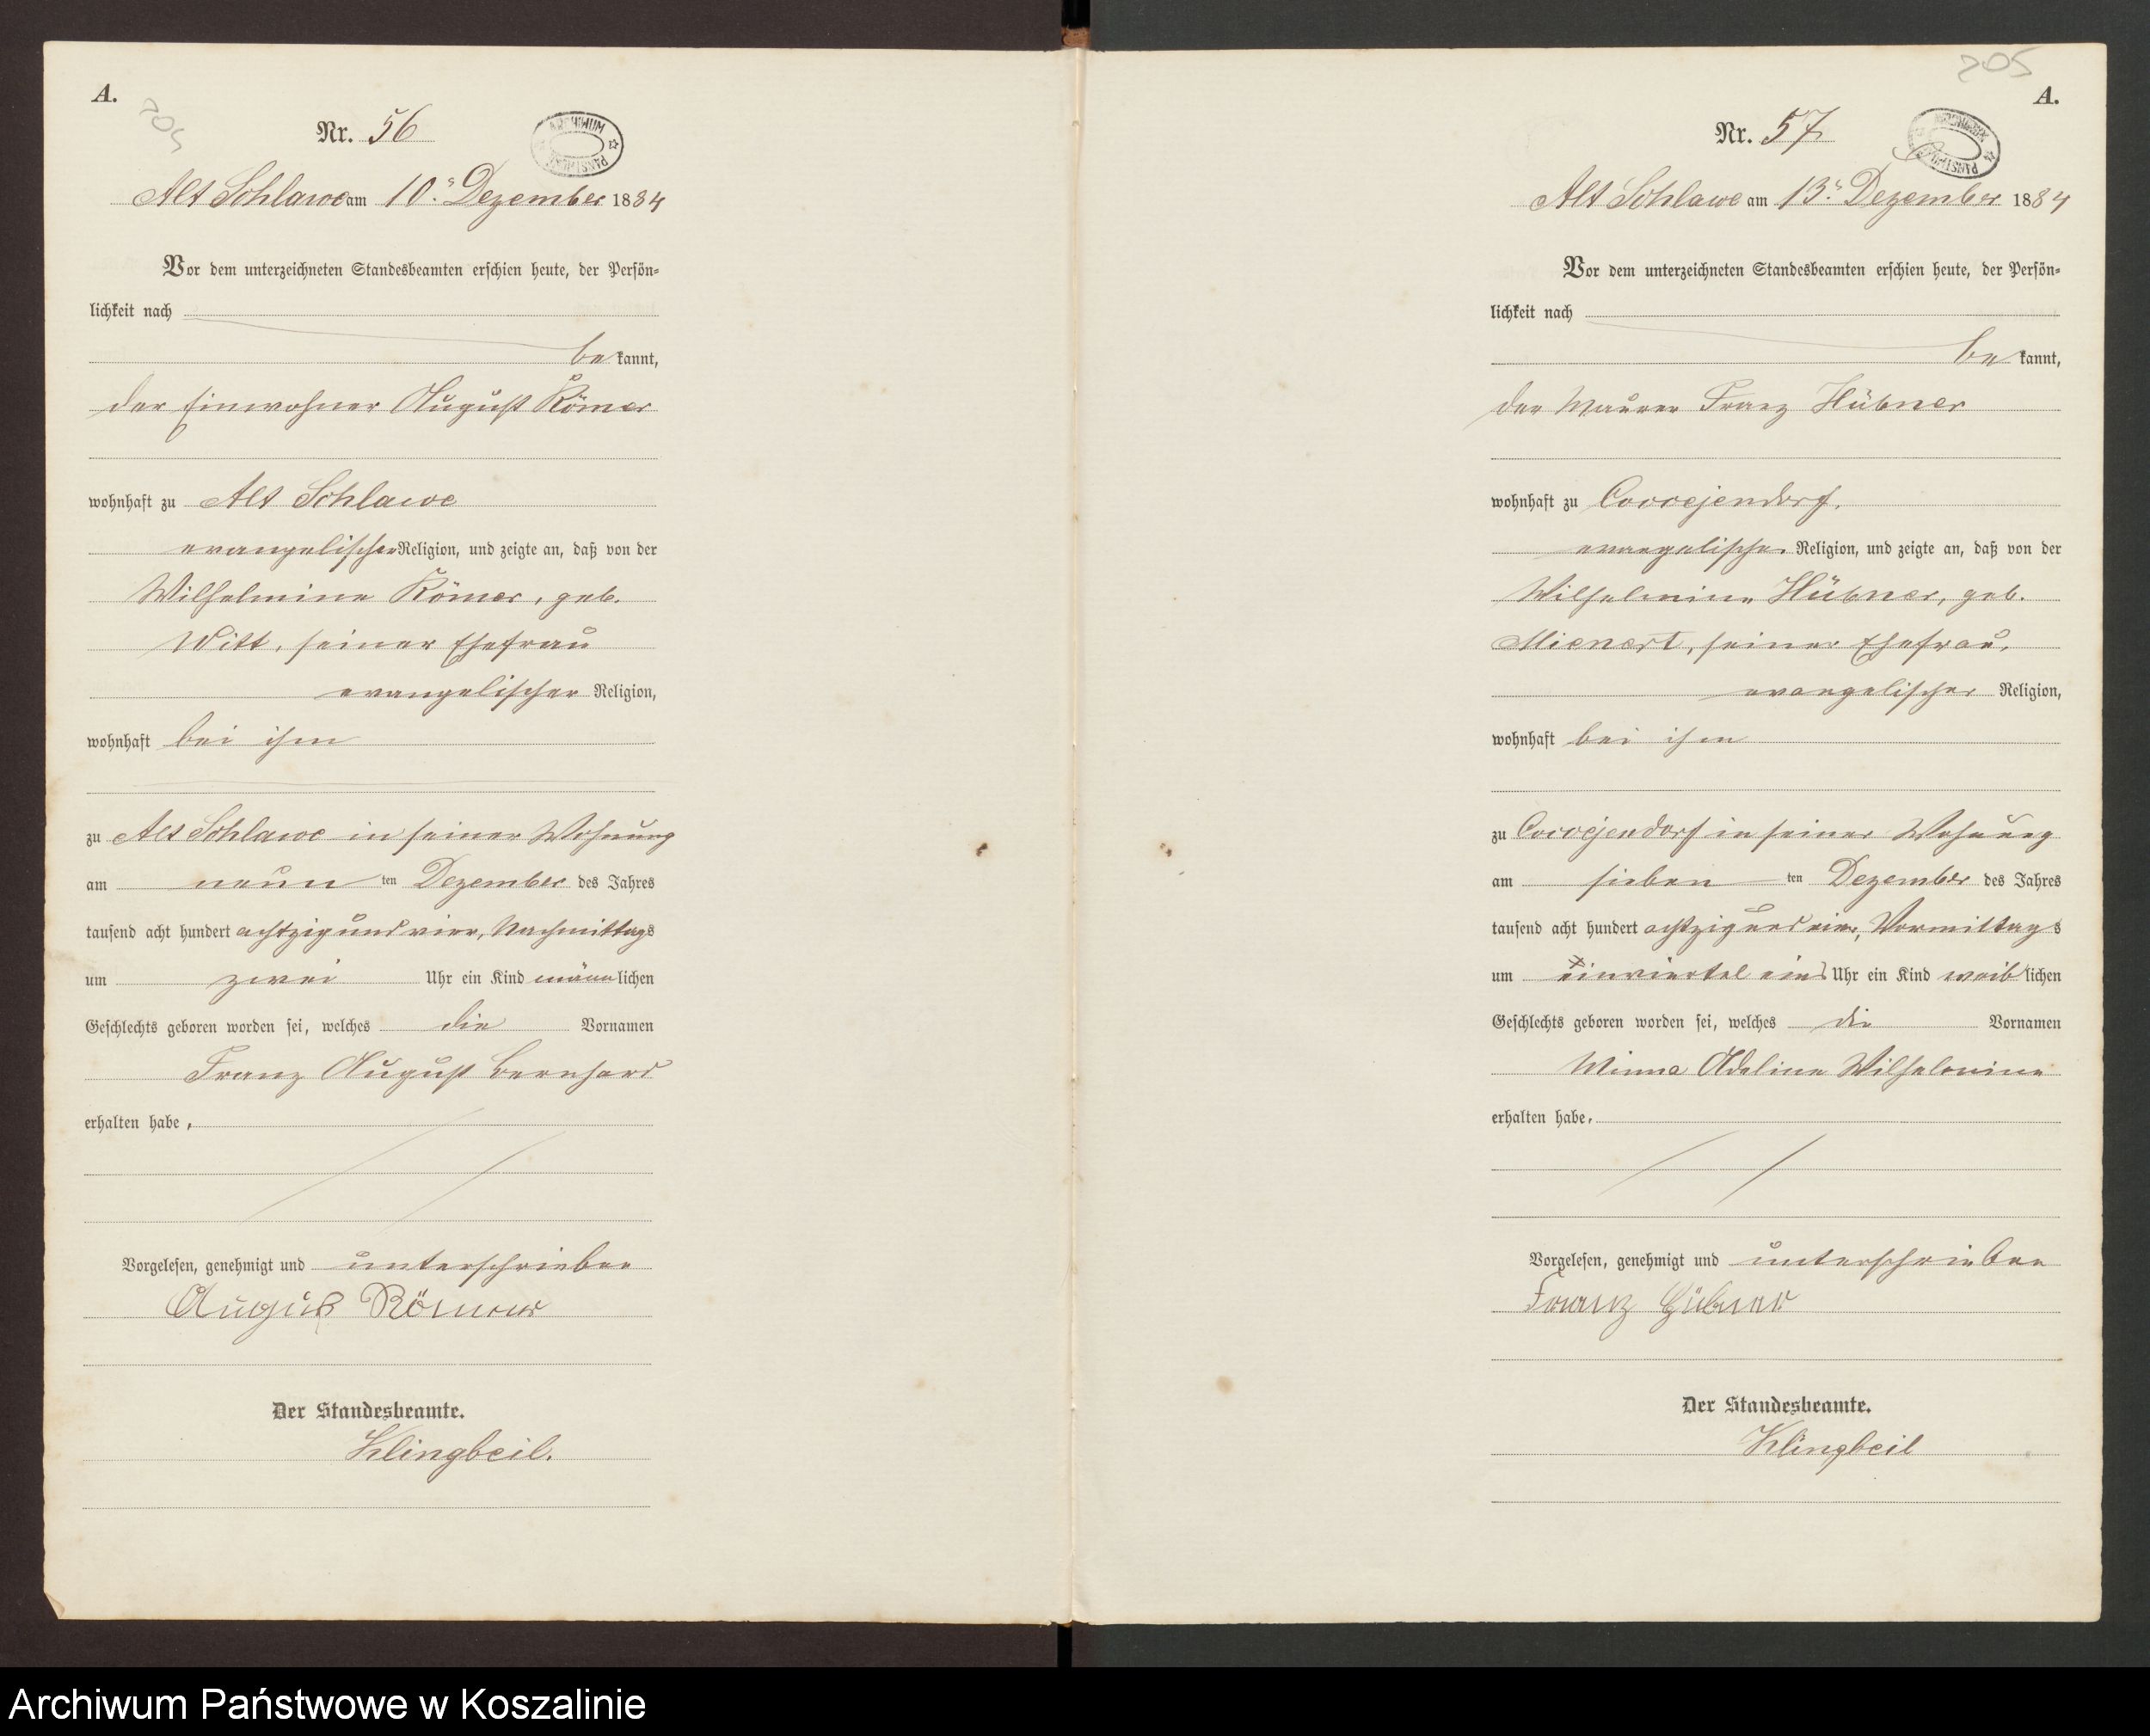 A.
204
Nr. 56
ARCHIWUM PAŃSTWOWE
Alt Schlawe am 10. Dezember 1884
Vor dem unterzeichneten Standesbeamten erschien heute, der Persön-
lichkeit nach
be kannt,
der Einwohner August Römer
wohnhaft zu Alt Schlawe
evangelischer Religion, und zeigte an, daß von der
Wilhelmine Römer, geb.
Witt, seiner Ehefrau
evangelischer Religion,
wohnhaft bei ihm
zu Alt Schlawe in seiner Wohnung
am neun ten Dezember des Jahres
tausend acht hundert achtzig und vier, Nachmittags
um zwei Uhr ein Kind männlichen
Geschlechts geboren worden sei, welches die Vornamen
Franz August Bernhard
erhalten habe.
Vorgelesen, genehmigt und unterschrieben
August Römer
Der Standesbeamte.
Klingbeil.
205
A.
Nr. 57
ARCHIWUM PAŃSTWOWE
Alt Schlawe am 13. Dezember 1884
Vor dem unterzeichneten Standesbeamten erschien heute, der Persön-
lichkeit nach
be kannt,
der Maurer Franz Hübner
wohnhaft zu Coccejendorf.
evangelischer Religion, und zeigte an, daß von der
Wilhelmine Hübner, geb.
Mienert, seiner Ehefrau,
evangelischer Religion,
wohnhaft bei ihm
zu Coccejendorf in seiner Wohnung
am sieben ten Dezember des Jahres
tausend acht hundert achtzig und vier, Vormittags
um einviertel eins Uhr ein Kind weiblichen
Geschlechts geboren worden sei, welches die Vornamen
Minna Adeline Wilhelmine
erhalten habe.
Vorgelesen, genehmigt und unterschrieben
Franz Hübner
Der Standesbeamte.
Klingbeil
Archiwum Państwowe w Koszalinie